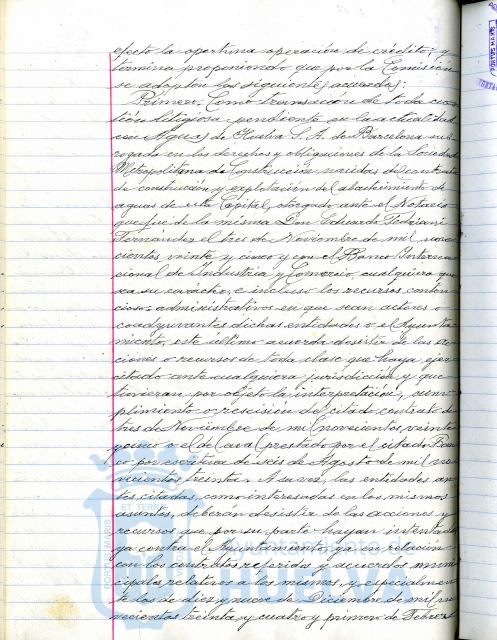 efecto la oportuna operación de crédito; y
termina proponiendo que por la Comisión
se adopten los siguientes acuerdos:
Primero: Como transacción de toda cues
tión litigiosa pendiente en la actualidad
con Aguas de Huelva S.A. de Barcelona su
rogada en los derechos y obligaciones de la Sociedad
Metropolitana de Construcción, nacidas del contrato
de construcción y explotación del abastecimiento de
aguas de esta Capital, otorgado ante el Notario
que fué de la misma Don Eduardo
Fernández el tres de Noviembre de mil nove
cientos veinte y cinco y con el Banco Interna
cional de Industria y Comercio, cualquiera que
sea su carácter, e incluso los recursos conten
cioso administrativos en que sean actores o
coadyuvantes dichas entidades o el Ayunta
miento, este último acuerda desistir de las ac
ciones o recursos de toda clase que haya ejer
citado ante cualquiera jurisdicción y que
tuvieran por objeto la interpretación, cum
plimiento o rescisión del citado contrato de
tres de Noviembre de mil novecientos veinte
y cinco o el de prestado por el citado Ban
co por escritura de seis de Agosto de mil no
vecientos treinta. A su vez, las entidades an
tes citadas, como interesadas en los mismos
asuntos, deberán desistir de las acciones y
recursos que por su parte hayan intentado
ya contra el Ayuntamiento, ya en relación
con los contratos referidos y acuerdos muni
cipales relativos a los mismos, y especialmen
te los de diez y nueve de Diciembre de mil no
vecientos treinta y cuatro y primero de Febrero
PORTUS MARIS
ET TERRAE
Ayuntamiento de
HUELVA